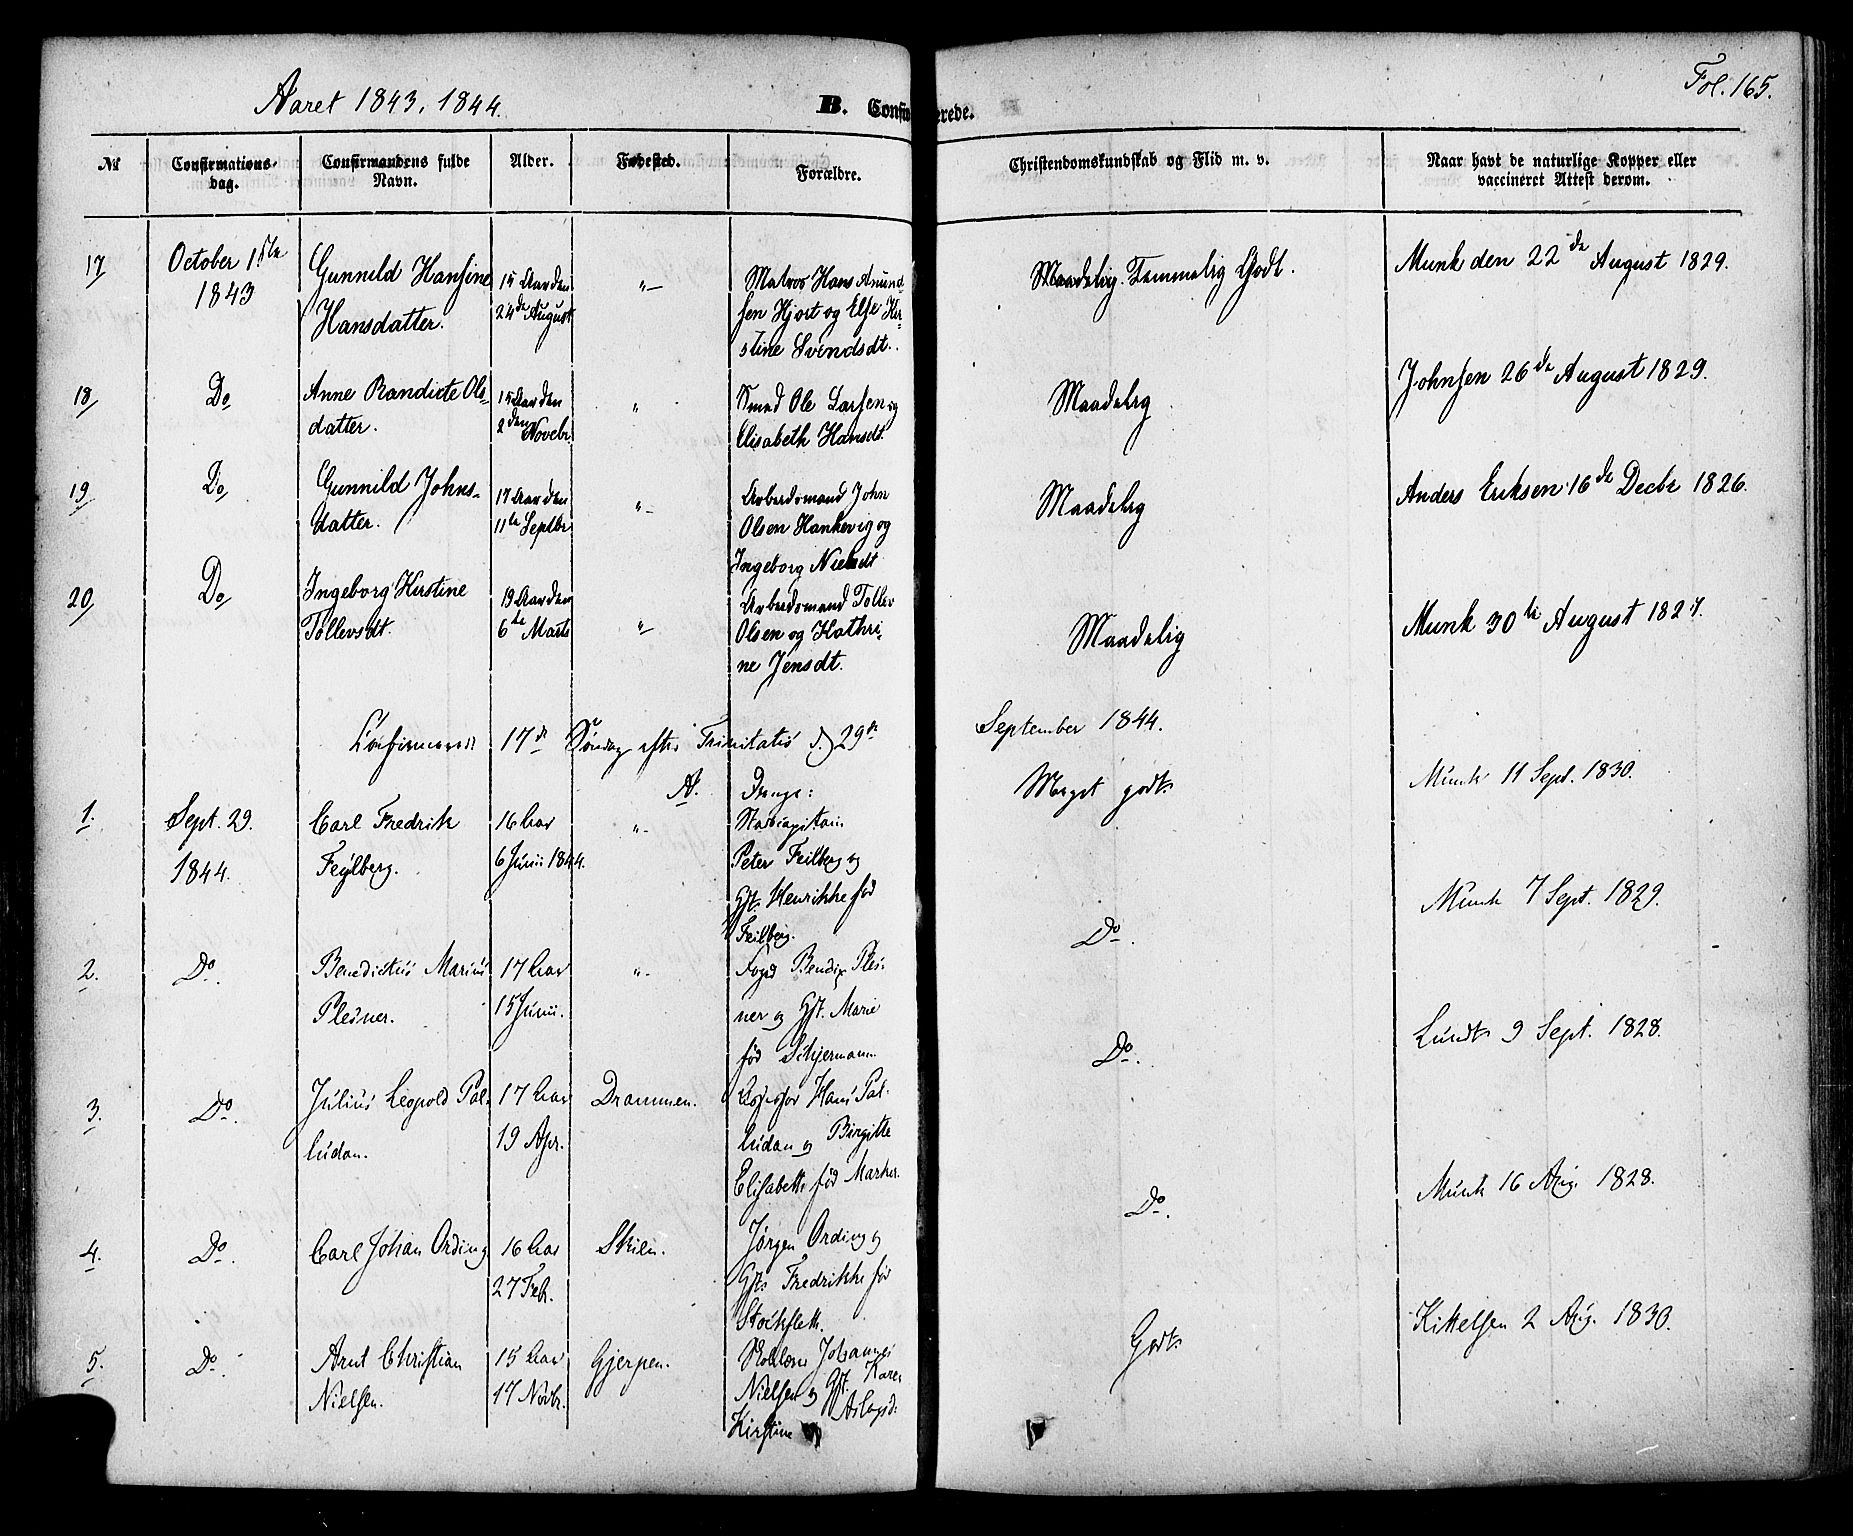 Aaret 1843, 1844.
B. Confirmerede.
Fol. 165.
№
Confirmations-
dag.
Confirmandens fulde
Navn.
Alder.
Fødested.
Forældre.
Christendomskundskab og Flid m. v.
Naar havt de naturlige Kopper eller
vaccineret Attest derom.
17
October 1ste
1843
Gunnild Hansine
Hansdatter.
15 Aar den
24de August
"
Matros Hans Amund-
sen Hjort og Else Kir-
stine Svendsdt.
Maadelig. Temmelig Godt.
Munk den 22de August 1829.
18
Do
Anne Bendicte Ols-
datter.
15 Aar den
2den Novebr
"
Smed Ole Larsen og
Elisabeth Hansdt.
Maadelig
Johnsen 26de August 1829.
19
Do
Gunnild Johns-
datter.
17 Aar den
11te Septbr
"
Arbeidsmand John
Olsen Hankevig og
Ingeborg Nielsdt
Maadelig
Anders Eriksen 16de Decbr 1826.
20
Do
Ingeborg Kirstine
Tollevsdt.
19 Aar den
6te Marts
"
Arbeidsmand Tollev
Olsen og Kathri-
ne Jensdt.
Maadelig
Munk 30te August 1827.
Confirmerede 17de Søndag efter Trinitatis d) 29de September 1844.
A. Drenge:
1.
Sept. 29.
1844.
Carl Fredrik
Feylberg.
16 Aar
6 Junii 1844.
"
Peter Feilberg og
Hst. Henrikke fød
Feilberg.
Meget godt
Munk 11 Sept. 1830.
2.
Do.
Benedictus Marius
Plesner.
17 Aar
15 Junii.
"
Foged Bendix Ples-
ner og Hst. Marie
fød Schjermann
Do.
Munk 7 Sept. 1829.
3.
Do.
Julius Leopold Pal-
ludan.
17 Aar
19 Apr.
Drammen.
Hans Pal-
ludan og Birgitte
Elisabeth fød Marker.
Do.
Lundt 9 Sept. 1828.
4.
Do.
Carl Johan Ording
16 Aar
27 Feb.
Skien.
Jørgen Ording og
Hst. Fredrikke fød
Stockfleth.
Do.
Munk 16 Aug. 1828.
5.
Do.
Arnt Christian
Nielsen.
15 Aar
17 Novbr.
Gjerpen.
Johannes
Nielsen og Hst. Karen
Kirstine Aslagsd.
Godt
Kittelsen 2 Aug. 1830.